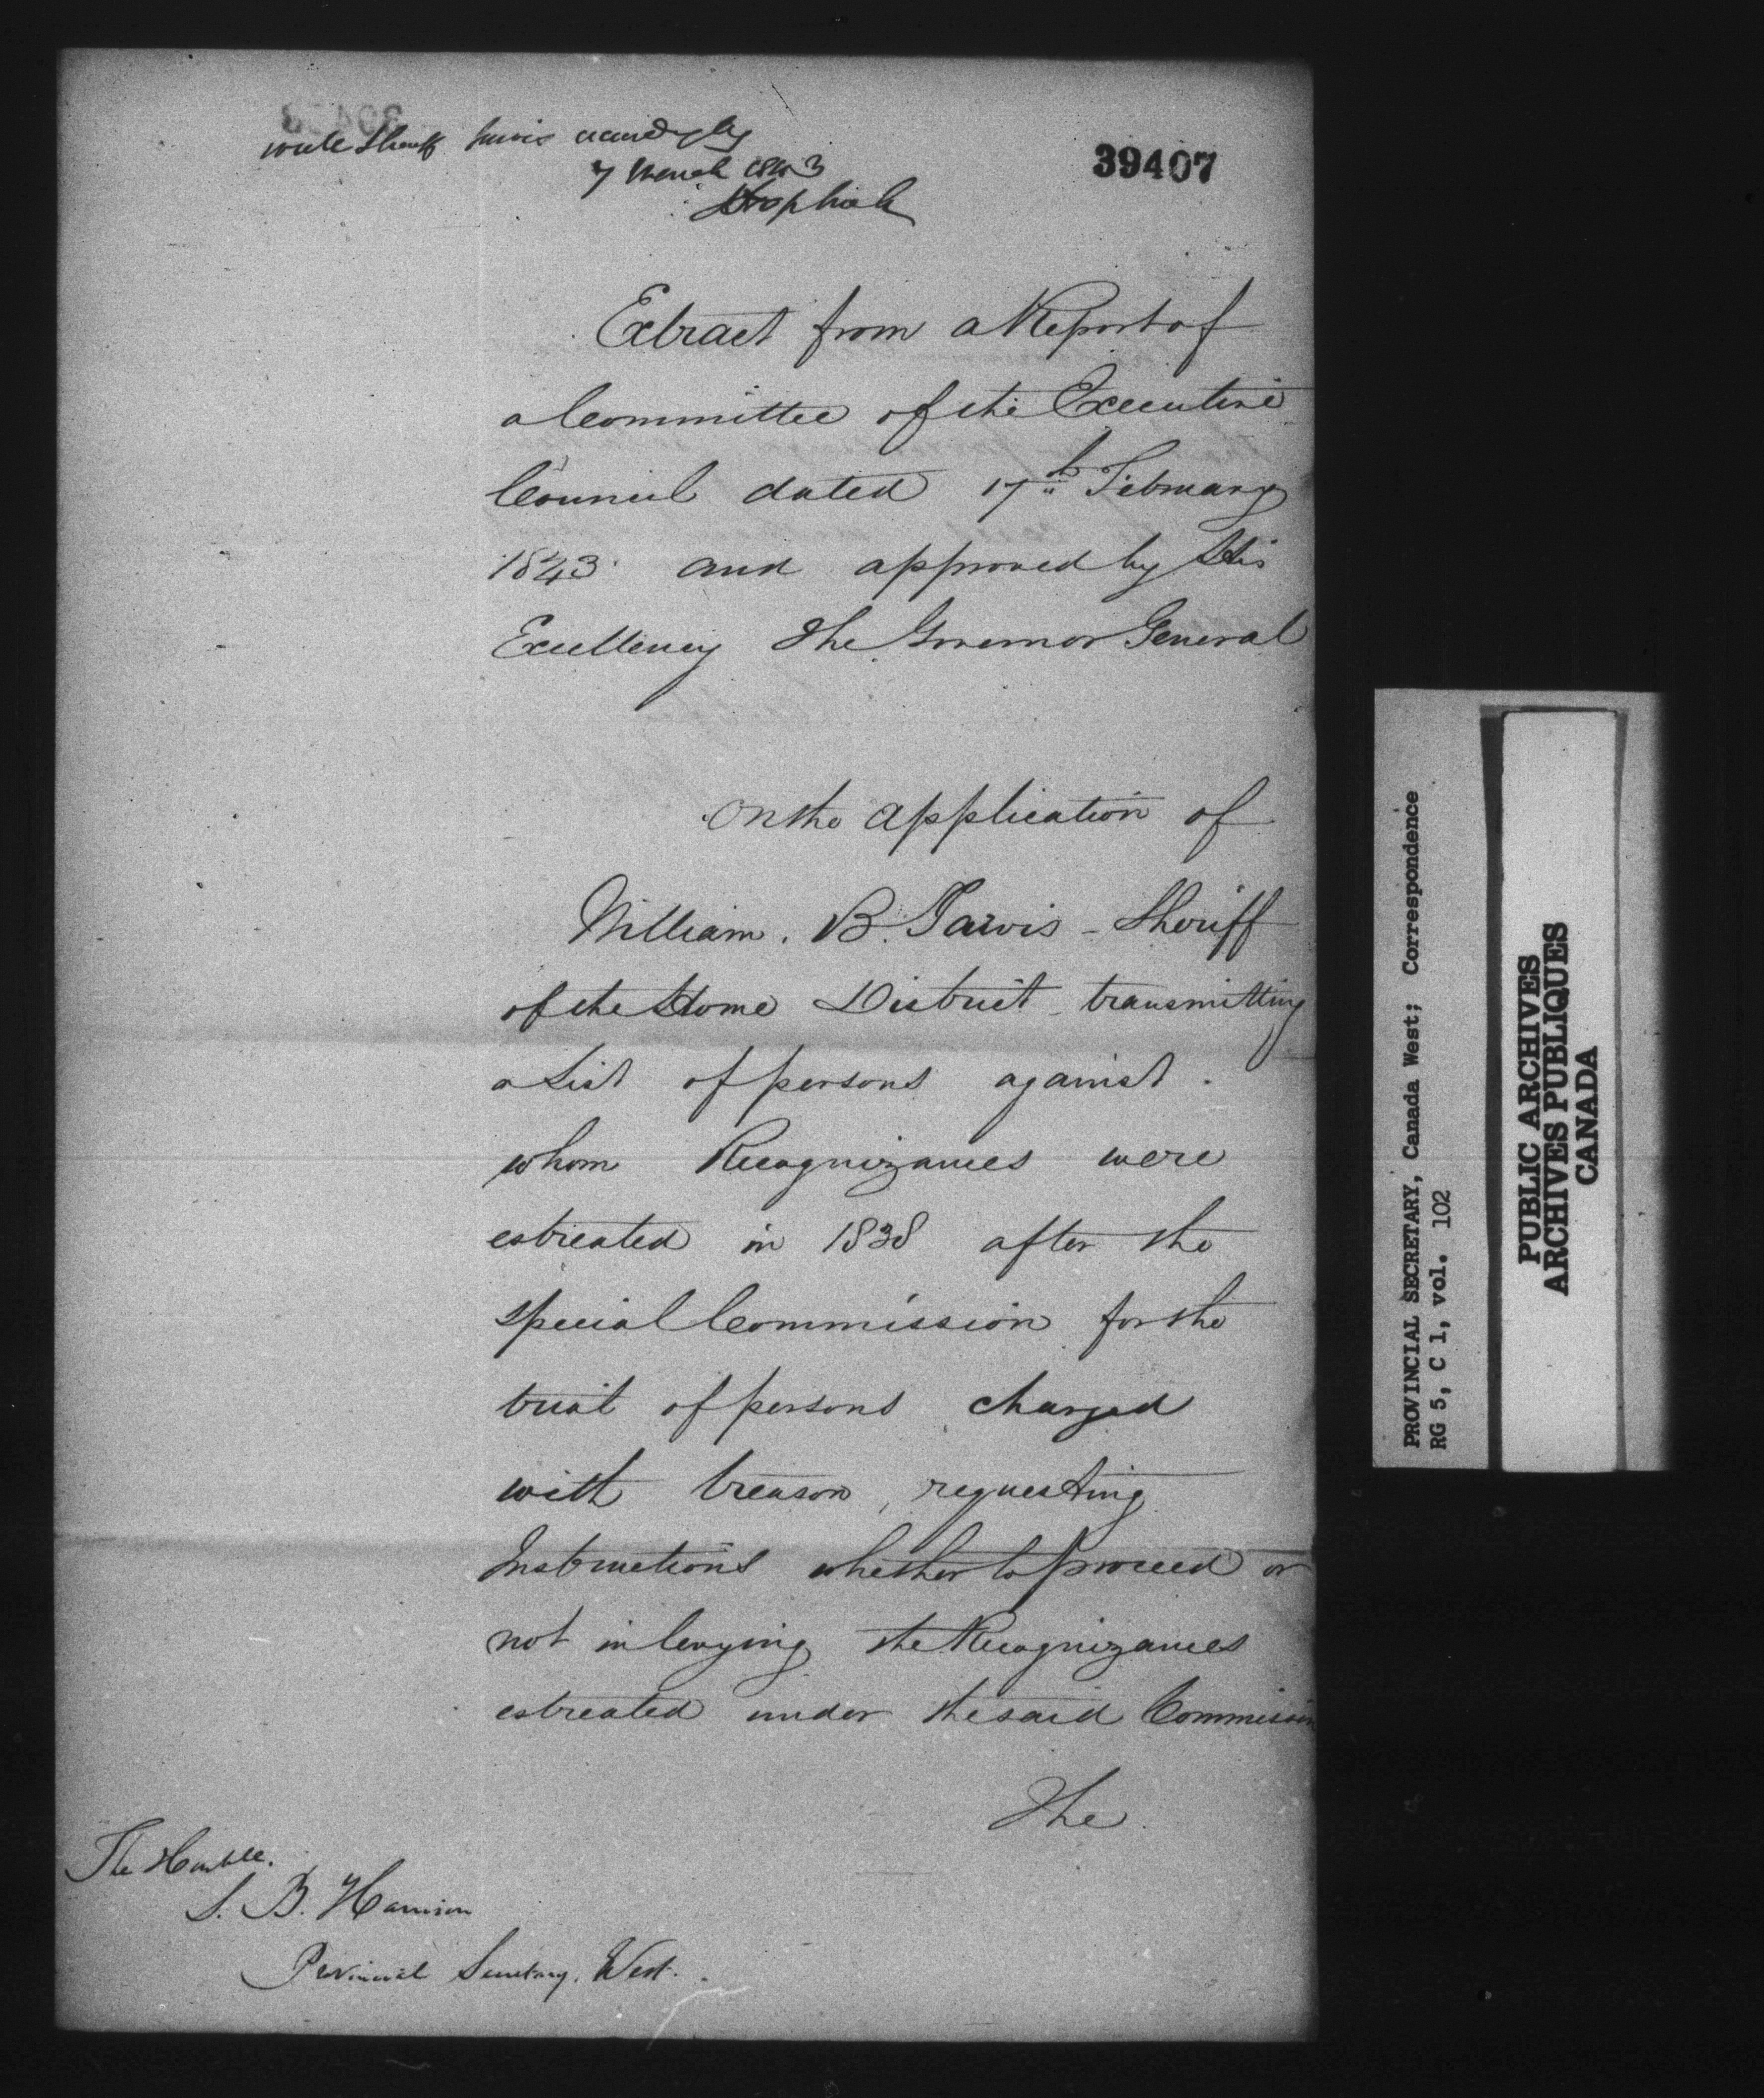 wrote Sheriff Jarvis accordingly
7 March 1843
39407
Extract from a Report of
a Committee of the Executive
Council dated 17th February
1843 and approved by His
Excellency The Governor General
On the application of
William. B. Jarvis - Sheriff
of the Home District transmitting
a List of persons against
whom Recognizances were
estreated in 1838 after the
special Commission for the
trial of persons charged
with treason, requesting
Instructions whether to proceed or
not in levying the Recognizances
estreated under the said Commission
The
The Honble.
S. B. Harrison
Provincial Secretary, West.
PROVINCIAL SECRETARY, Canada West; Correspondence
RG 5, C 1, vol. 102
PUBLIC ARCHIVES
ARCHIVES PUBLIQUES
CANADA